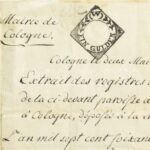 Mairee de
Cologne.
Cologne le deux Mar
Extrait des registres
de la ci devant paroisse
à Cologne, déposés à la
L'an mil sept cent soixan